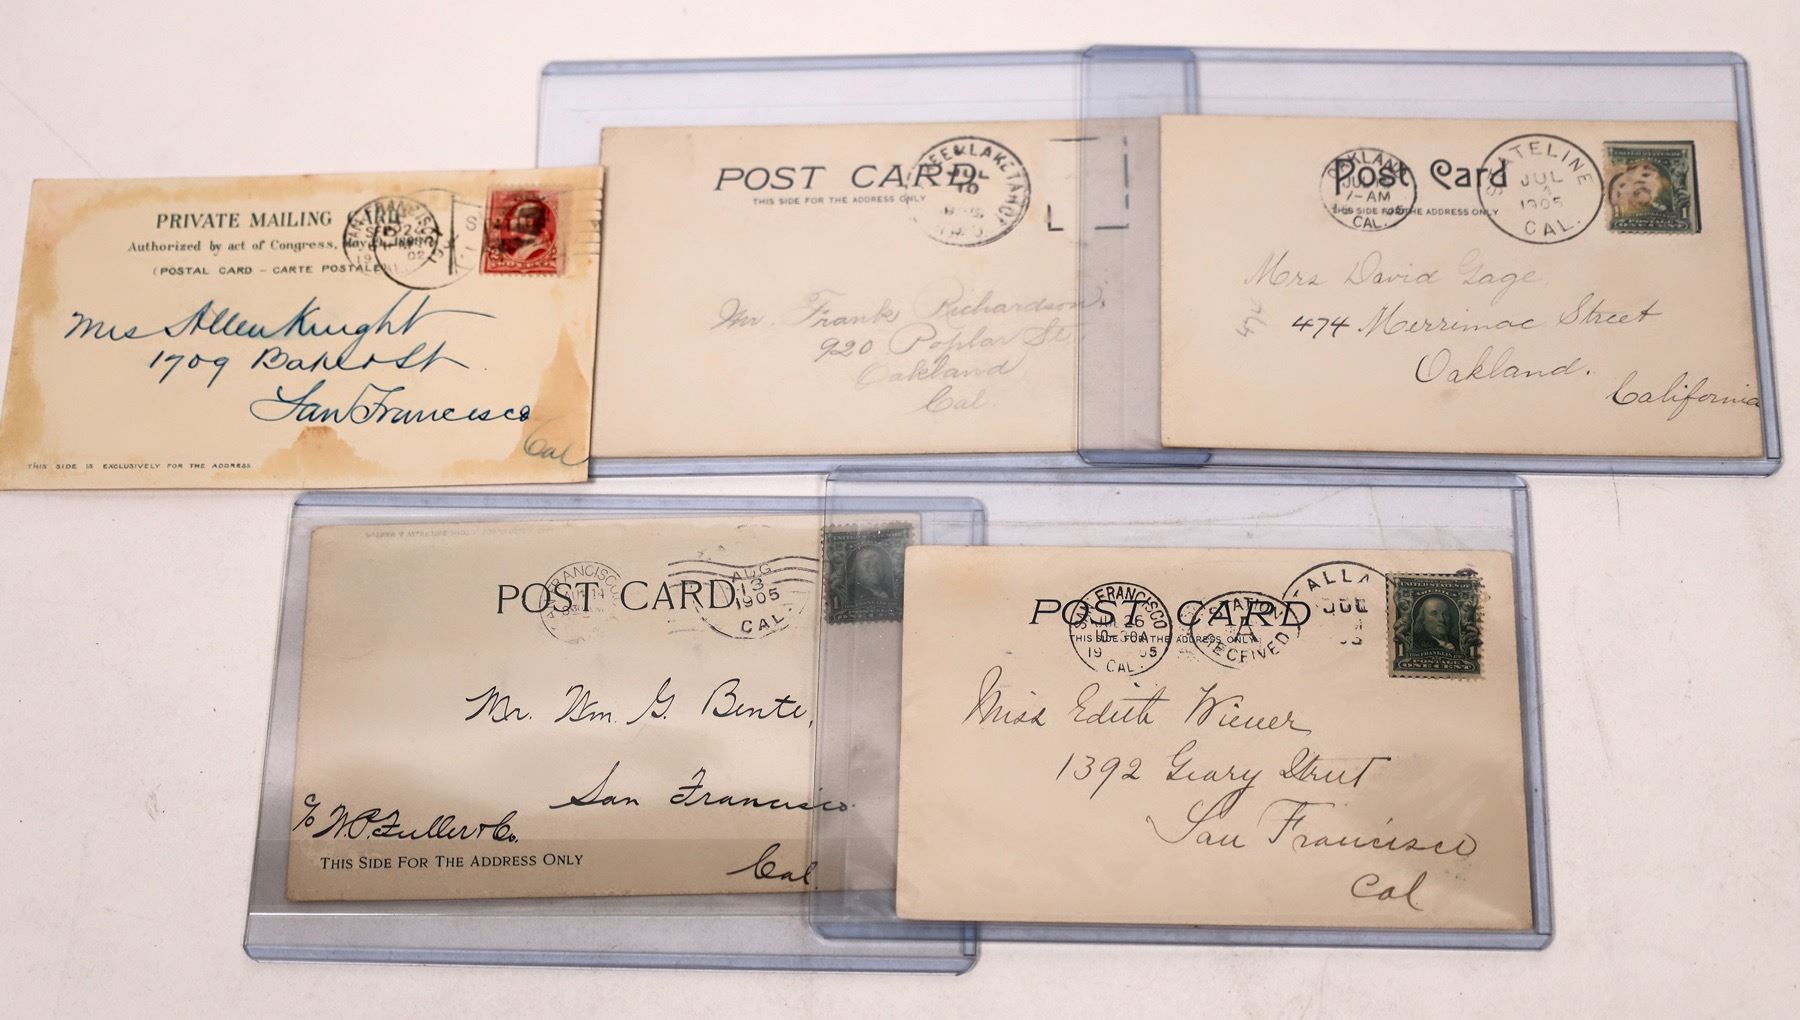 PRIVATE MAILING CARD
Authorized by act of Congress, May 19, 1898
(POSTAL CARD – CARTE POSTALE)
SAN FRANCISCO
SEP 24
02
Mrs Allen Knight
1709 Baker St
San Francisco
Cal
THIS SIDE IS EXCLUSIVELY FOR THE ADDRESS
POST CARD
THIS SIDE FOR THE ADDRESS ONLY
JUL
10
Mr. Frank Richardson,
920 Poplar St.
Oakland
Cal.
Post Card
THIS SIDE FOR THE ADDRESS ONLY
OAKLAND
7-AM
CAL.
STATELINE
JUL
1905
CAL.
Mrs David Gage
474
474 Merrimac Street
Oakland.
California
POST CARD
SAN FRANCISCO
14
AUG
13
1905
CAL.
1
Mr. Wm. G. Bente,
San Francisco
c/o W.P. Fuller & Co.
Cal.
THIS SIDE FOR THE ADDRESS ONLY
POST CARD
THIS SIDE FOR THE ADDRESS ONLY
SAN FRANCISCO
JUL 26
10-30A
19 05
CAL.
STATION
A
RECEIVED
TALLA
JUL
UNITED STATES OF
AMERICA
1 FRANKLIN 1
POSTAGE
ONE CENT
Miss Edith Wiener
1392 Geary Street
San Francisco
Cal